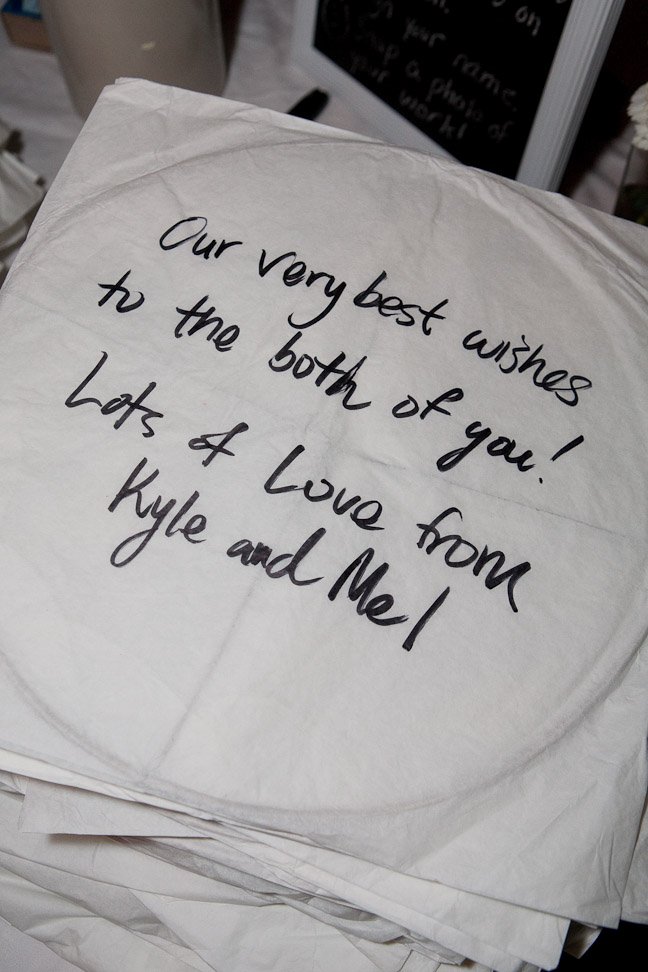 on
your name.
Snap a photo of
your work!
Our very best wishes
to the both of you!
Lots of Love from
Kyle and Me!